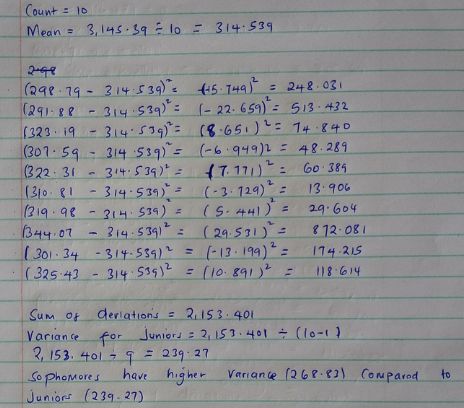 Count = 10
Mean = 3,145.39 ÷ 10 = 314.539
298
(298.79 - 314.539)² = (-15.749)² = 248.031
(291.88 - 314.539)² = (-22.659)² = 513.432
(323.19 - 314.539)² = (8.651)² = 74.840
(307.59 - 314.539)² = (-6.949)2 = 48.289
(322.31 - 314.539)² = (7.771)² = 60.389
(310.81 - 314.539)² = (-3.729)² = 13.906
(319.98 - 314.539) = (5.441)² = 29.604
(344.07 - 314.539)² = (29.531)² = 872.081
(301.34 - 314.539)² = (-13.199)² = 174.215
(325.43 - 314.539)² = (10.891)² = 118.614
Sum of deviations = 2,153.401
Variance for Juniors = 2,153.401 ÷ (10-1)
2,153.401 ÷ 9 = 239.27
Sophomores have higher variance (268.82) Compared to
Juniors (239.27)